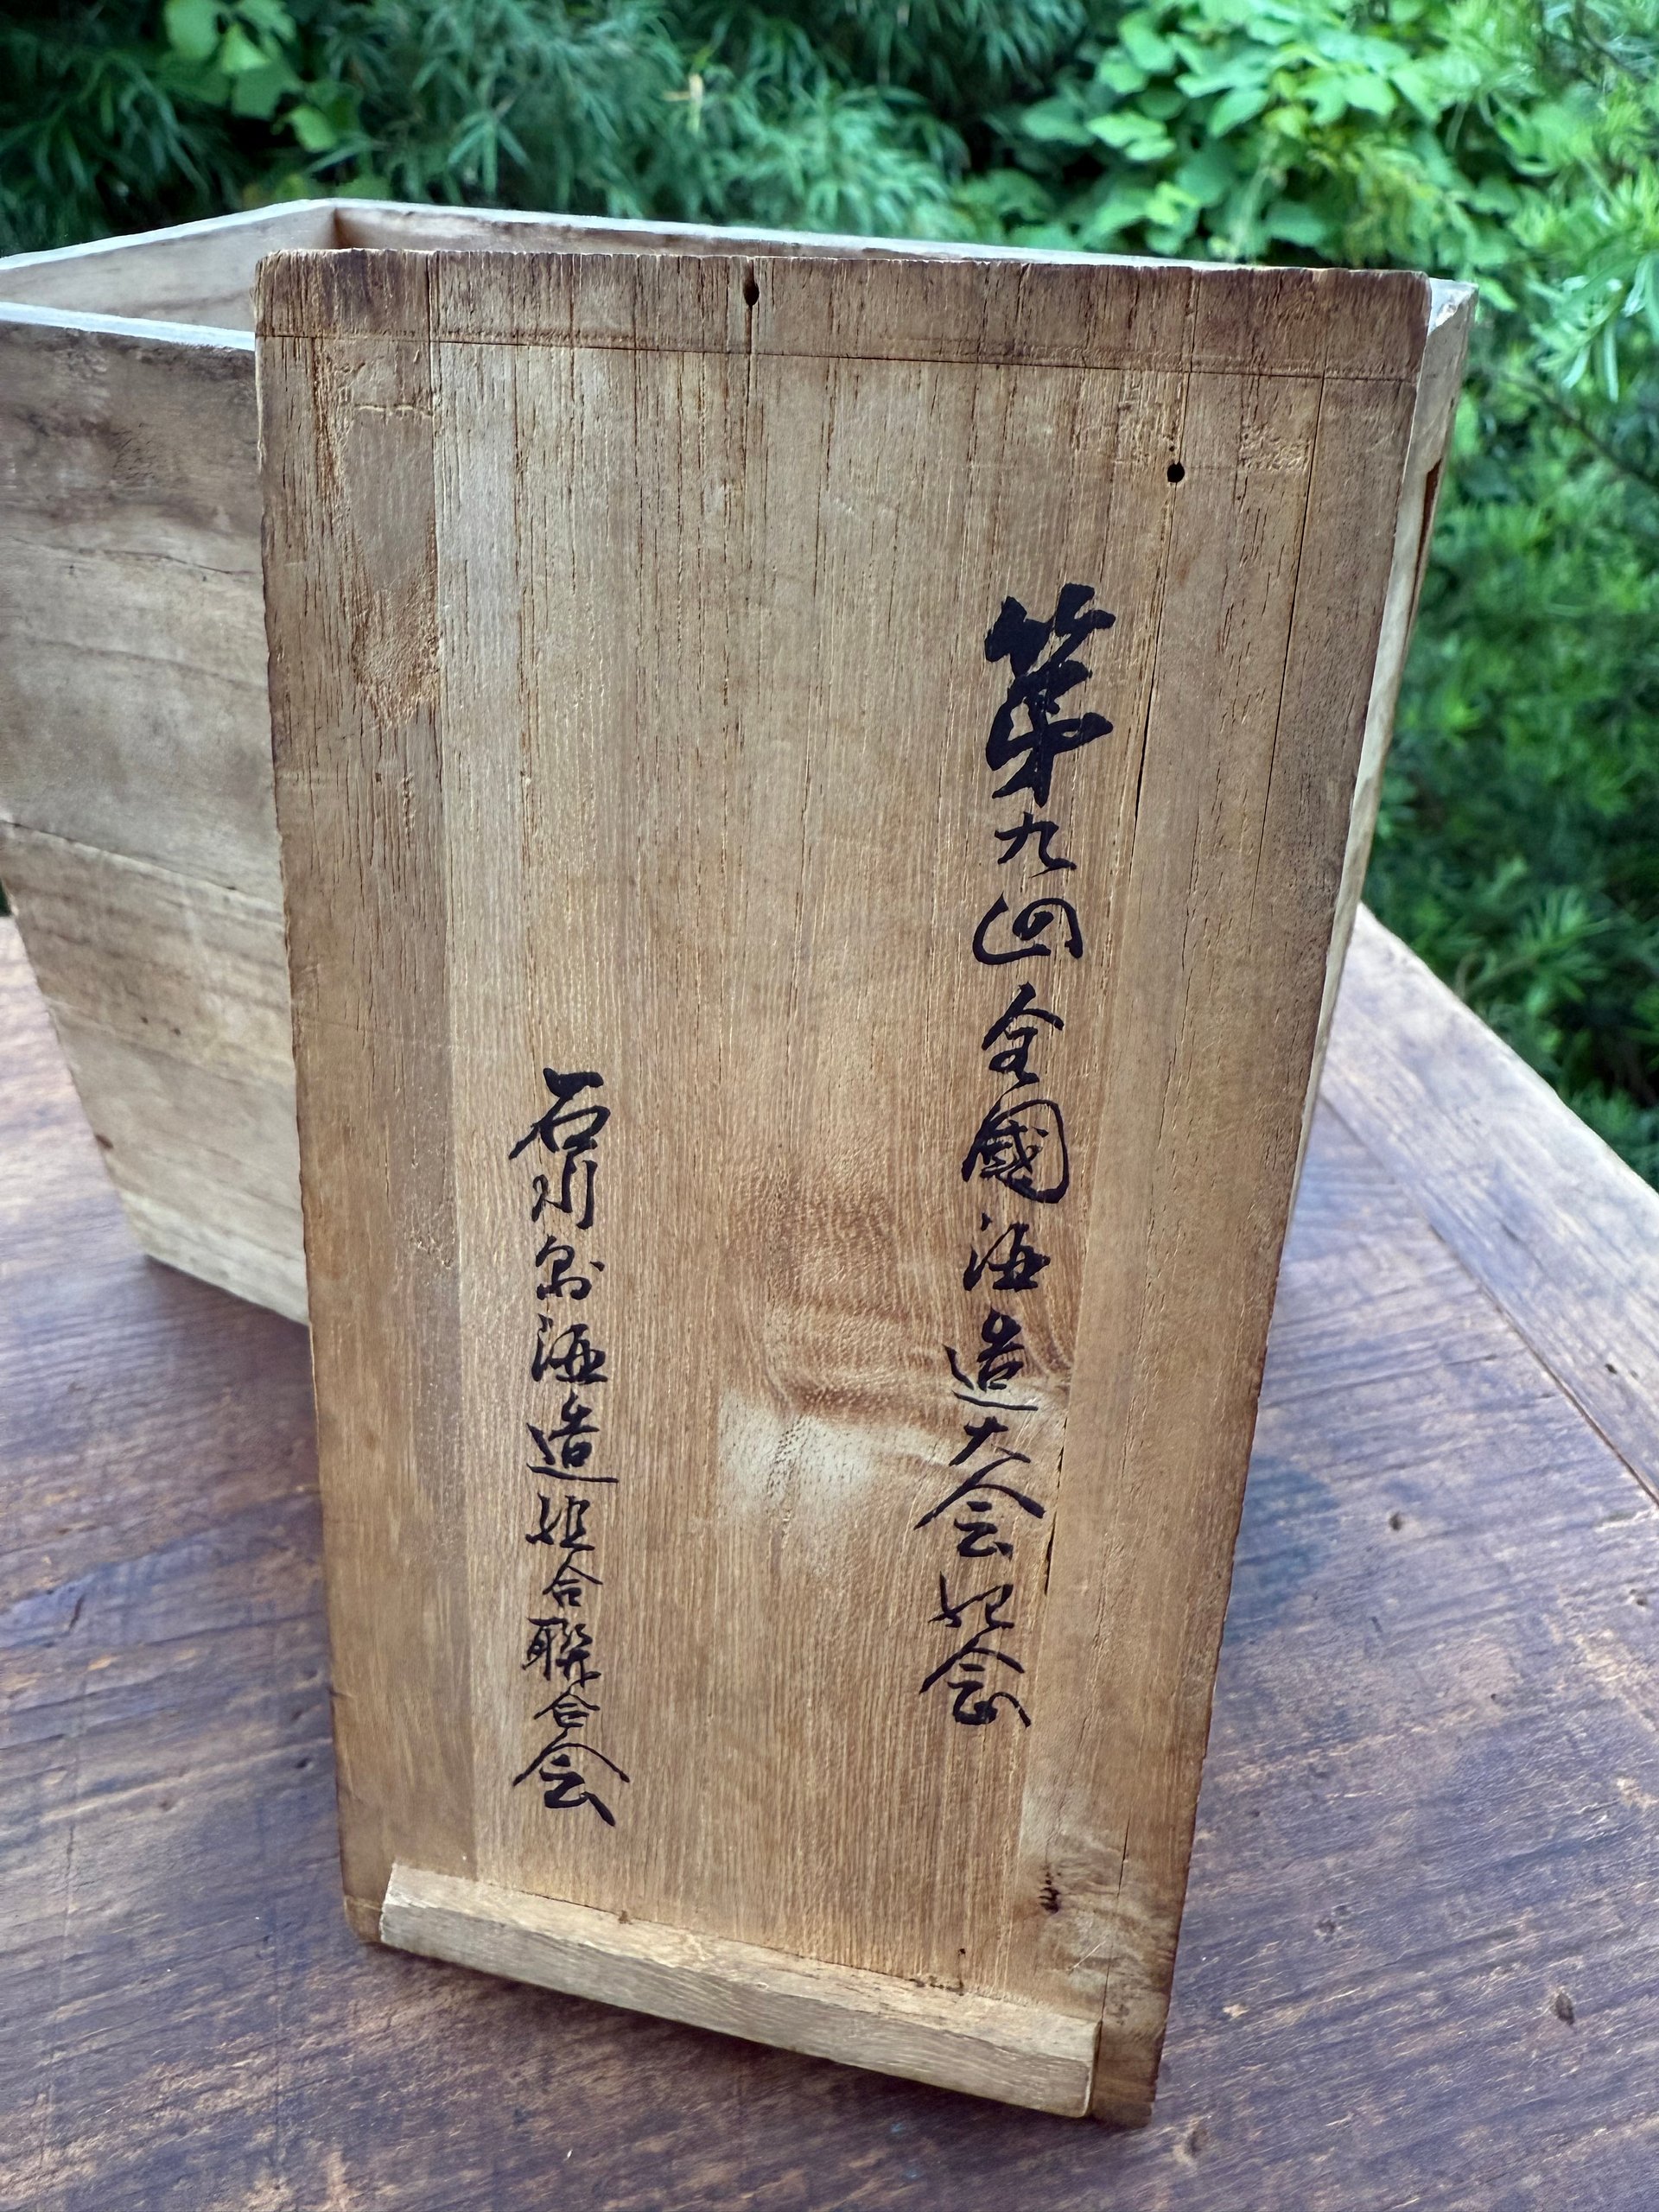 第九回全國酒造大会記念
石川縣酒造組合聯合会